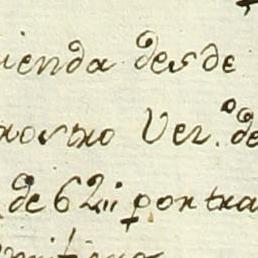 ienda desde
nostro Ver.º de
de 62ii por tra